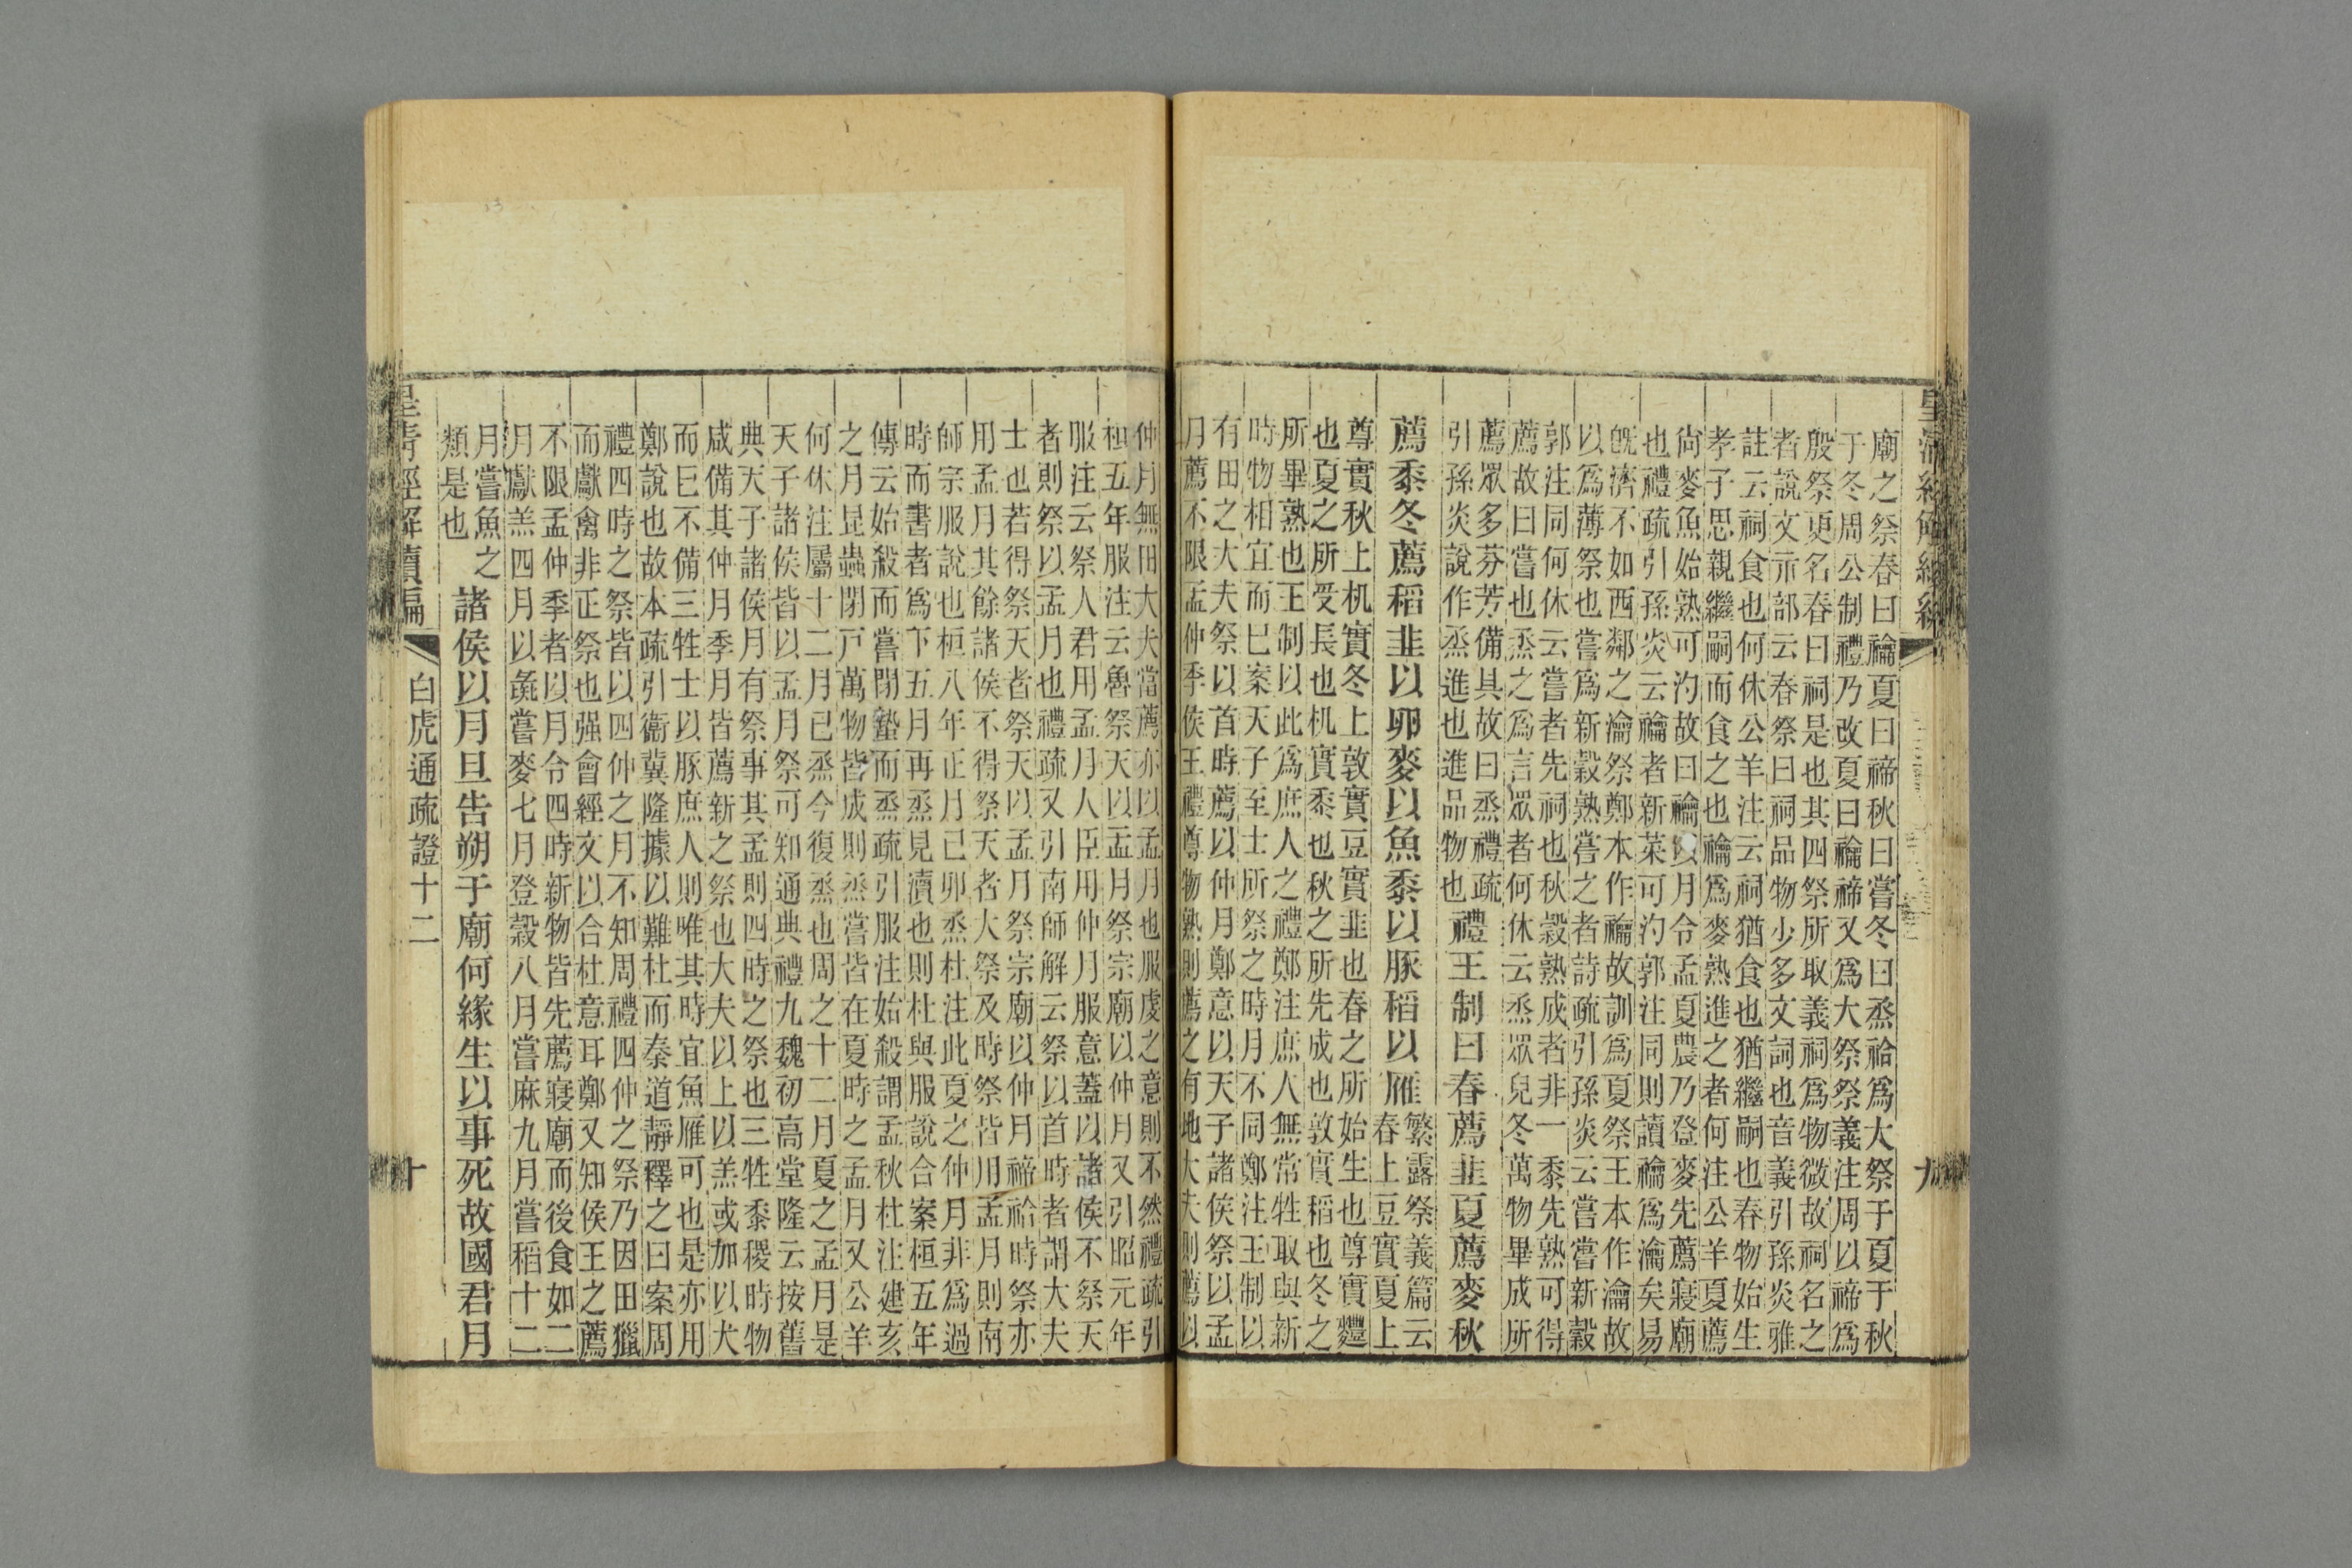 廟之祭春曰禴夏曰禘秋曰嘗冬曰烝祫爲大祭于夏于秋
于冬周公制禮乃改夏曰禴禘又爲大祭祭義注周以禘爲
殷祭更名春曰祠是也其四祭所取義祠爲物微故祠名之
者說文示部云春祭曰祠品物少多文詞也音義引孫炎雅
註云祠食也何休公羊注云祠猶食也猶繼嗣也春物始生
孝子思親繼嗣而食之也禴爲麥熟進之者何注公羊夏薦
尙麥魚始熟可汋故曰禴 月令孟夏農乃登麥先薦寢廟
也禮疏引孫炎云禴者新菜可汋郭注同則讀禴爲瀹矣易
旣濟不如西鄰之瀹祭鄭本作禴故訓爲夏祭王本作瀹故
以爲薄祭也嘗爲新穀熟嘗之者詩疏引孫炎云嘗嘗新穀
郭注同何休云嘗者先祠也秋穀熟成者非一黍先熟可得
薦故曰嘗也烝之爲言眾者何休云烝眾皃冬萬物畢成所
薦眾多芬芳備具故曰烝禮疏
引孫炎說作烝進也進品物也禮王制曰春薦韭夏薦麥秋
薦黍冬薦稻韭以卵麥以魚黍以豚稻以雁繁露祭義篇云
春上豆實夏上
尊實秋上机實冬上敦實豆實韭也春之所始生也尊實麷
也夏之所受長也机實黍也秋之所先成也敦實稻也冬之
所畢熟也王制以此爲庶人之禮鄭注庶人無常牲取與新
時物相宜而已案天子至士所祭之時月不同鄭注王制以
有田之大夫祭以首時薦以仲月鄭意以天子諸侯祭以孟
月薦不限孟仲季侯王禮尊物熟則薦之有地大夫則薦以
仲月無田大夫當薦亦以孟月也服虔之意則不然禮疏引
桓五年服注云魯祭天以孟月祭宗廟以仲月又引昭元年
服注云祭人君用孟月人臣用仲月服意蓋以諸侯不祭天
者則祭以孟月也禮疏又引南師解云祭以首時者謂大夫
士也若得祭天者祭天以孟月祭宗廟以仲月禘祫時祭亦
用孟月其餘諸侯不得祭天者大祭及時祭皆用孟月則南
師宗服說也桓八年正月己卯烝杜注此夏之仲月非爲過
時而書者爲下五月再烝見瀆也則杜與服說合案桓五年
傳云始殺而嘗閉蟄而烝疏引服注始殺謂孟秋杜注建亥
之月昆蟲閉戸萬物皆成則烝嘗皆在夏時之孟月又公羊
何休注屬十二月已烝今復烝也周之十二月夏之孟月是
天子諸侯皆以孟月祭可知通典禮九魏初高堂隆云按舊
典天子諸侯月有祭事其孟則四時之祭也三牲黍稷時物
咸備其仲月季月皆薦新之祭也大夫以上以羔或加以犬
而巳不備三牲士以豚庶人則唯其時宜魚雁可也是亦用
鄭說也故本疏引衞冀隆據以難杜而秦道靜釋之曰案周
禮四時之祭皆以四仲之月不知周禮四仲之祭乃因田獵
而獻禽非正祭也强會經文以合杜意耳鄭又知侯王之薦
不限孟仲季者以月令四時新物皆先薦寢廟而後食如二
月獻羔四月以彘嘗麥七月登穀八月嘗麻九月嘗稻十二
月嘗魚之
類是也諸侯以月旦告朔于廟何緣生以事死故國君月
皇清經解續編
白虎通疏證十二
十
九